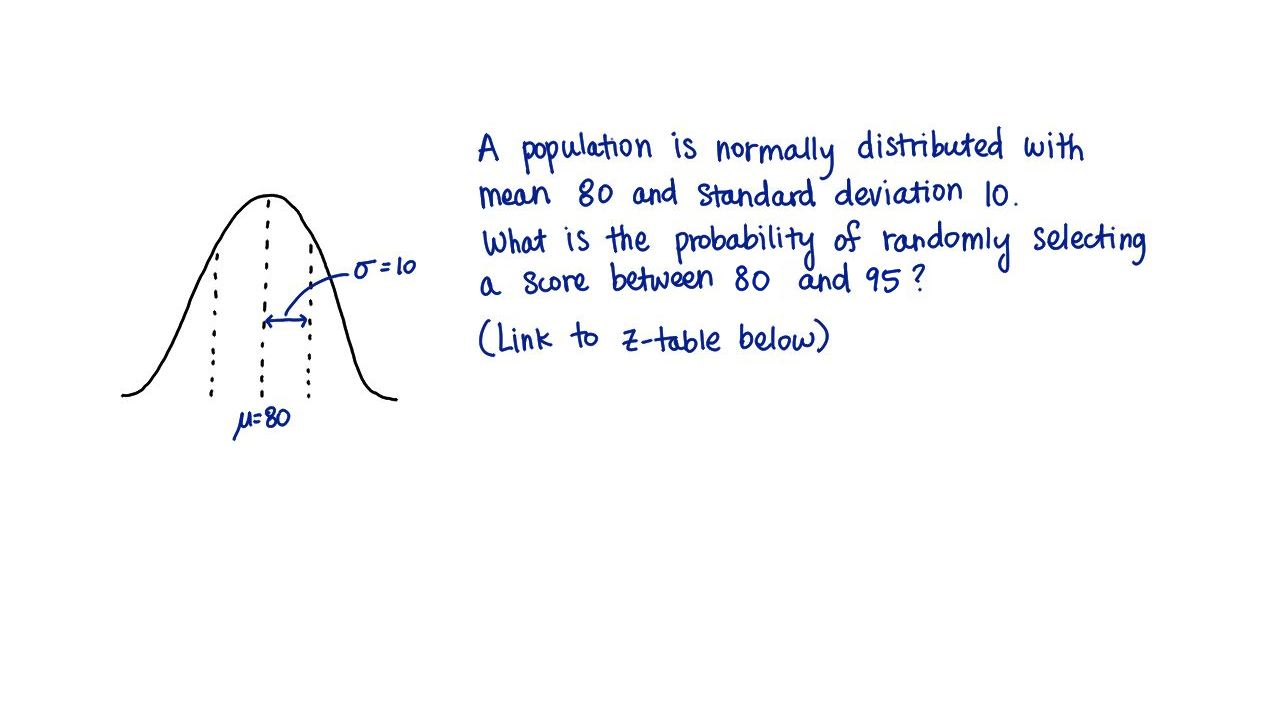 A population is normally distributed with
mean 80 and standard deviation 10.
What is the probability of randomly selecting
a score between 80 and 95?
(Link to z-table below)
σ=10
μ=80